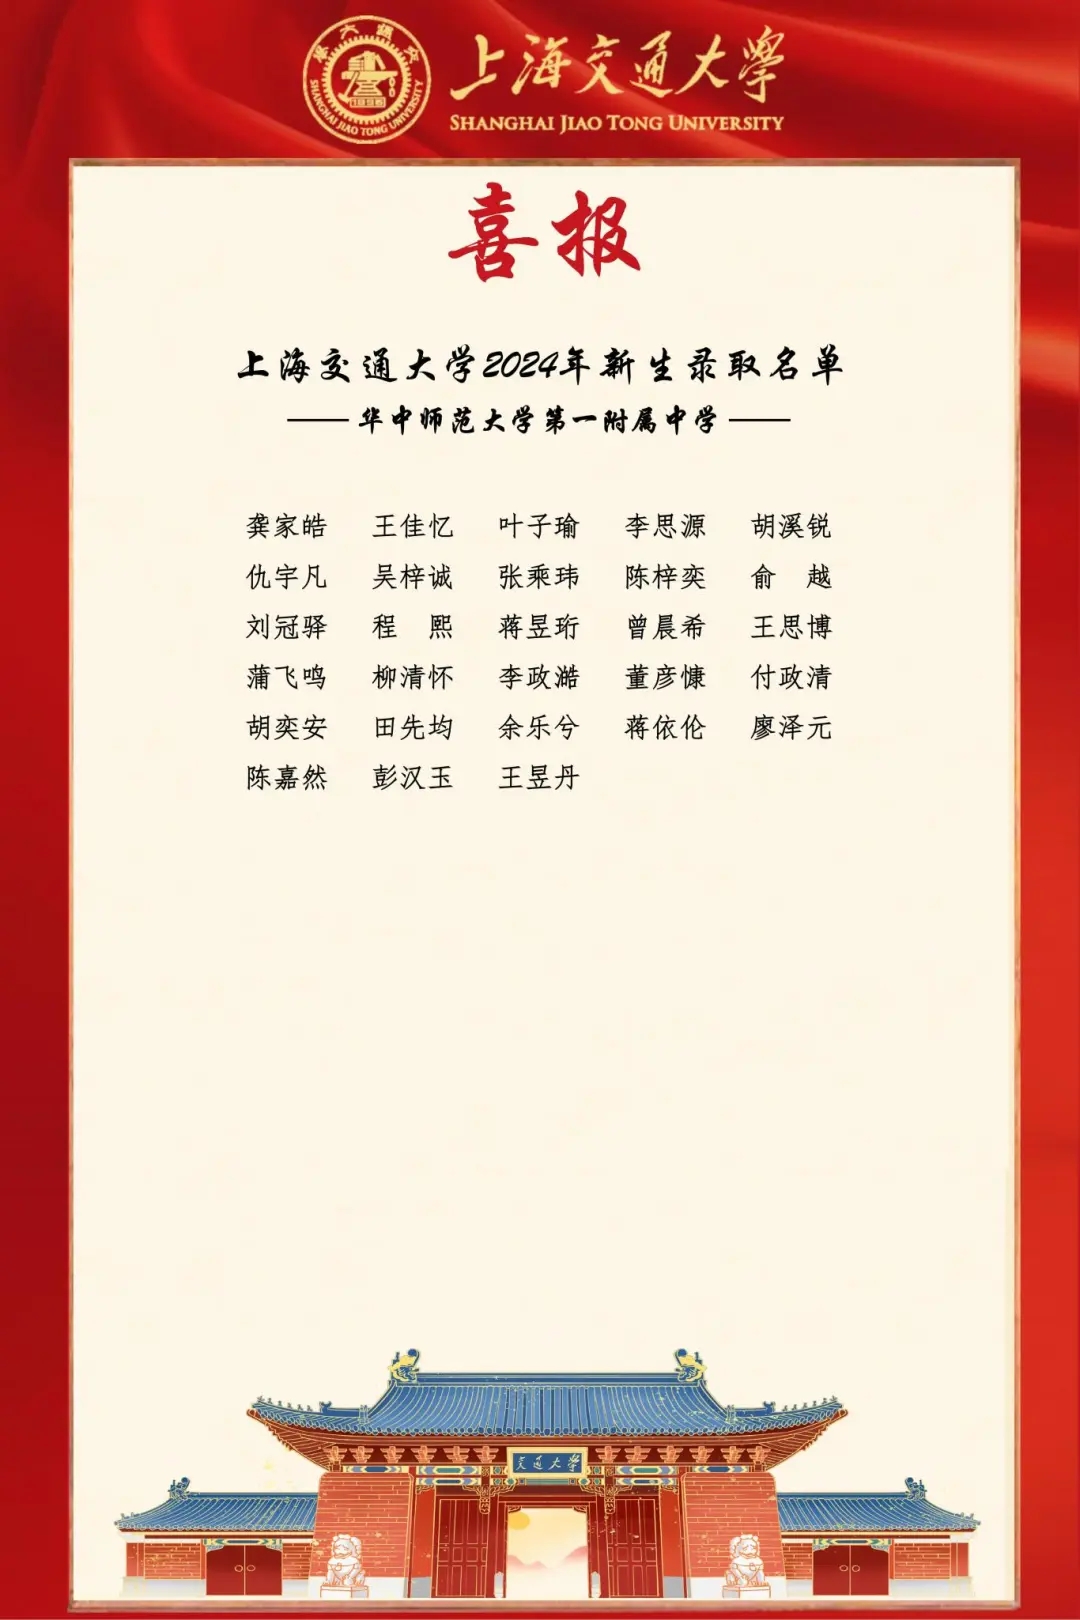 上海交通大学
SHANGHAI JIAO TONG UNIVERSITY
SHANGHAI JIAO TONG UNIVERSITY
喜报
上海交通大学2024年新生录取名单
——华中师范大学第一附属中学——
龚家皓 王佳忆 叶子瑜 李思源 胡溪锐
仇宇凡 吴梓诚 张乘玮 陈梓奕 俞 越
刘冠驿 程 熙 蒋昱珩 曾晨希 王思博
蒲飞鸣 柳清怀 李政澔 董彦慷 付政清
胡奕安 田先均 余乐兮 蒋依伦 廖泽元
陈嘉然 彭汉玉 王昱丹
交通大学